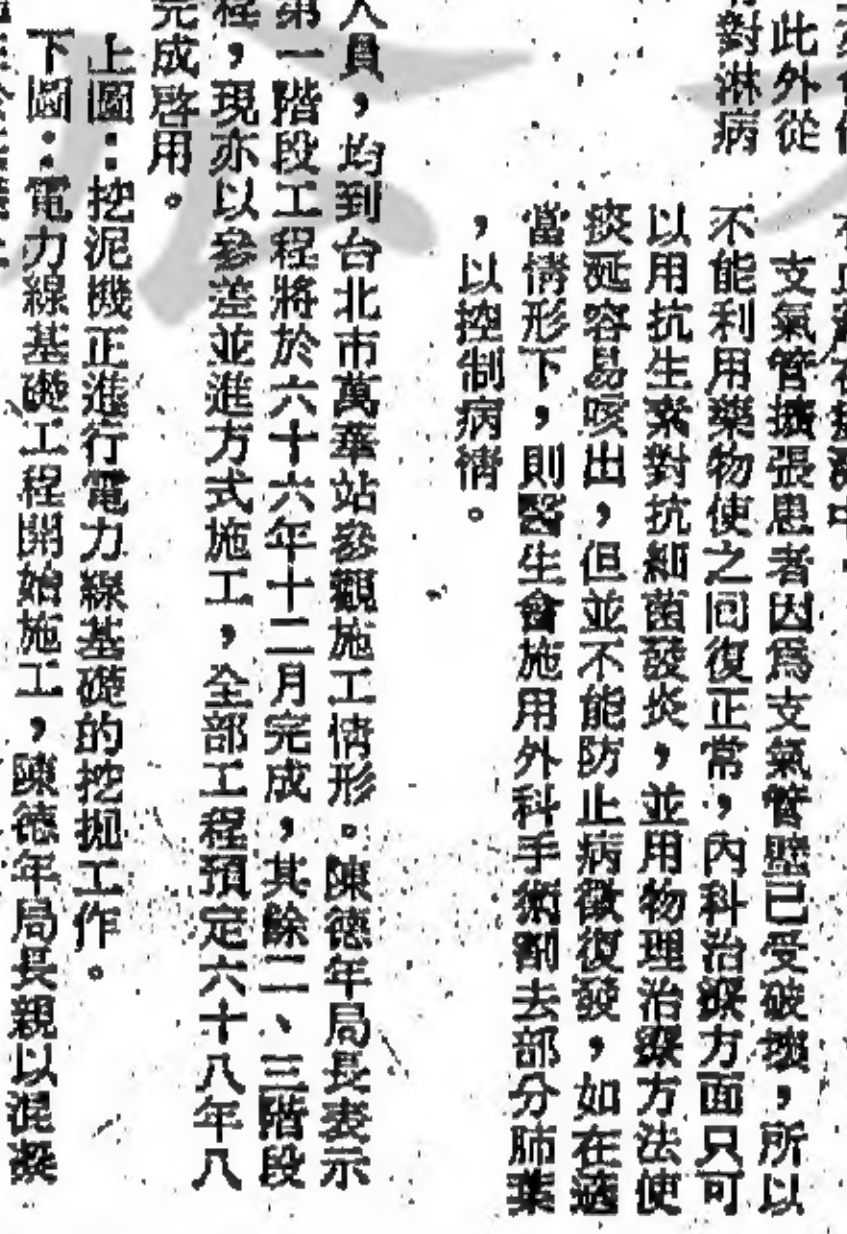 此外從
對淋病
支氣管擴張患者因爲支氣管壁已受破壞，所以
不能利用藥物使之回復正常，內科治療方面只可
以用抗生素對抗細菌發炎，並用物理治療方法使
痰涎容易咳出，但並不能防止病徵復發，如在適
當情形下，則醫生會施用外科手術割去部分肺葉
，以控制病情。
人員，均到台北市萬華站參觀施工情形。陳德年局長表示
第一階段工程將於六十六年十二月完成，其餘二、三階段
程，現亦以參差並進方式施工，全部工程預定六十八年八
完成啓用。
上圖：挖泥機正進行電力線基礎的挖掘工作。
下圖：電力線基礎工程開始施工，陳德年局長親以混凝